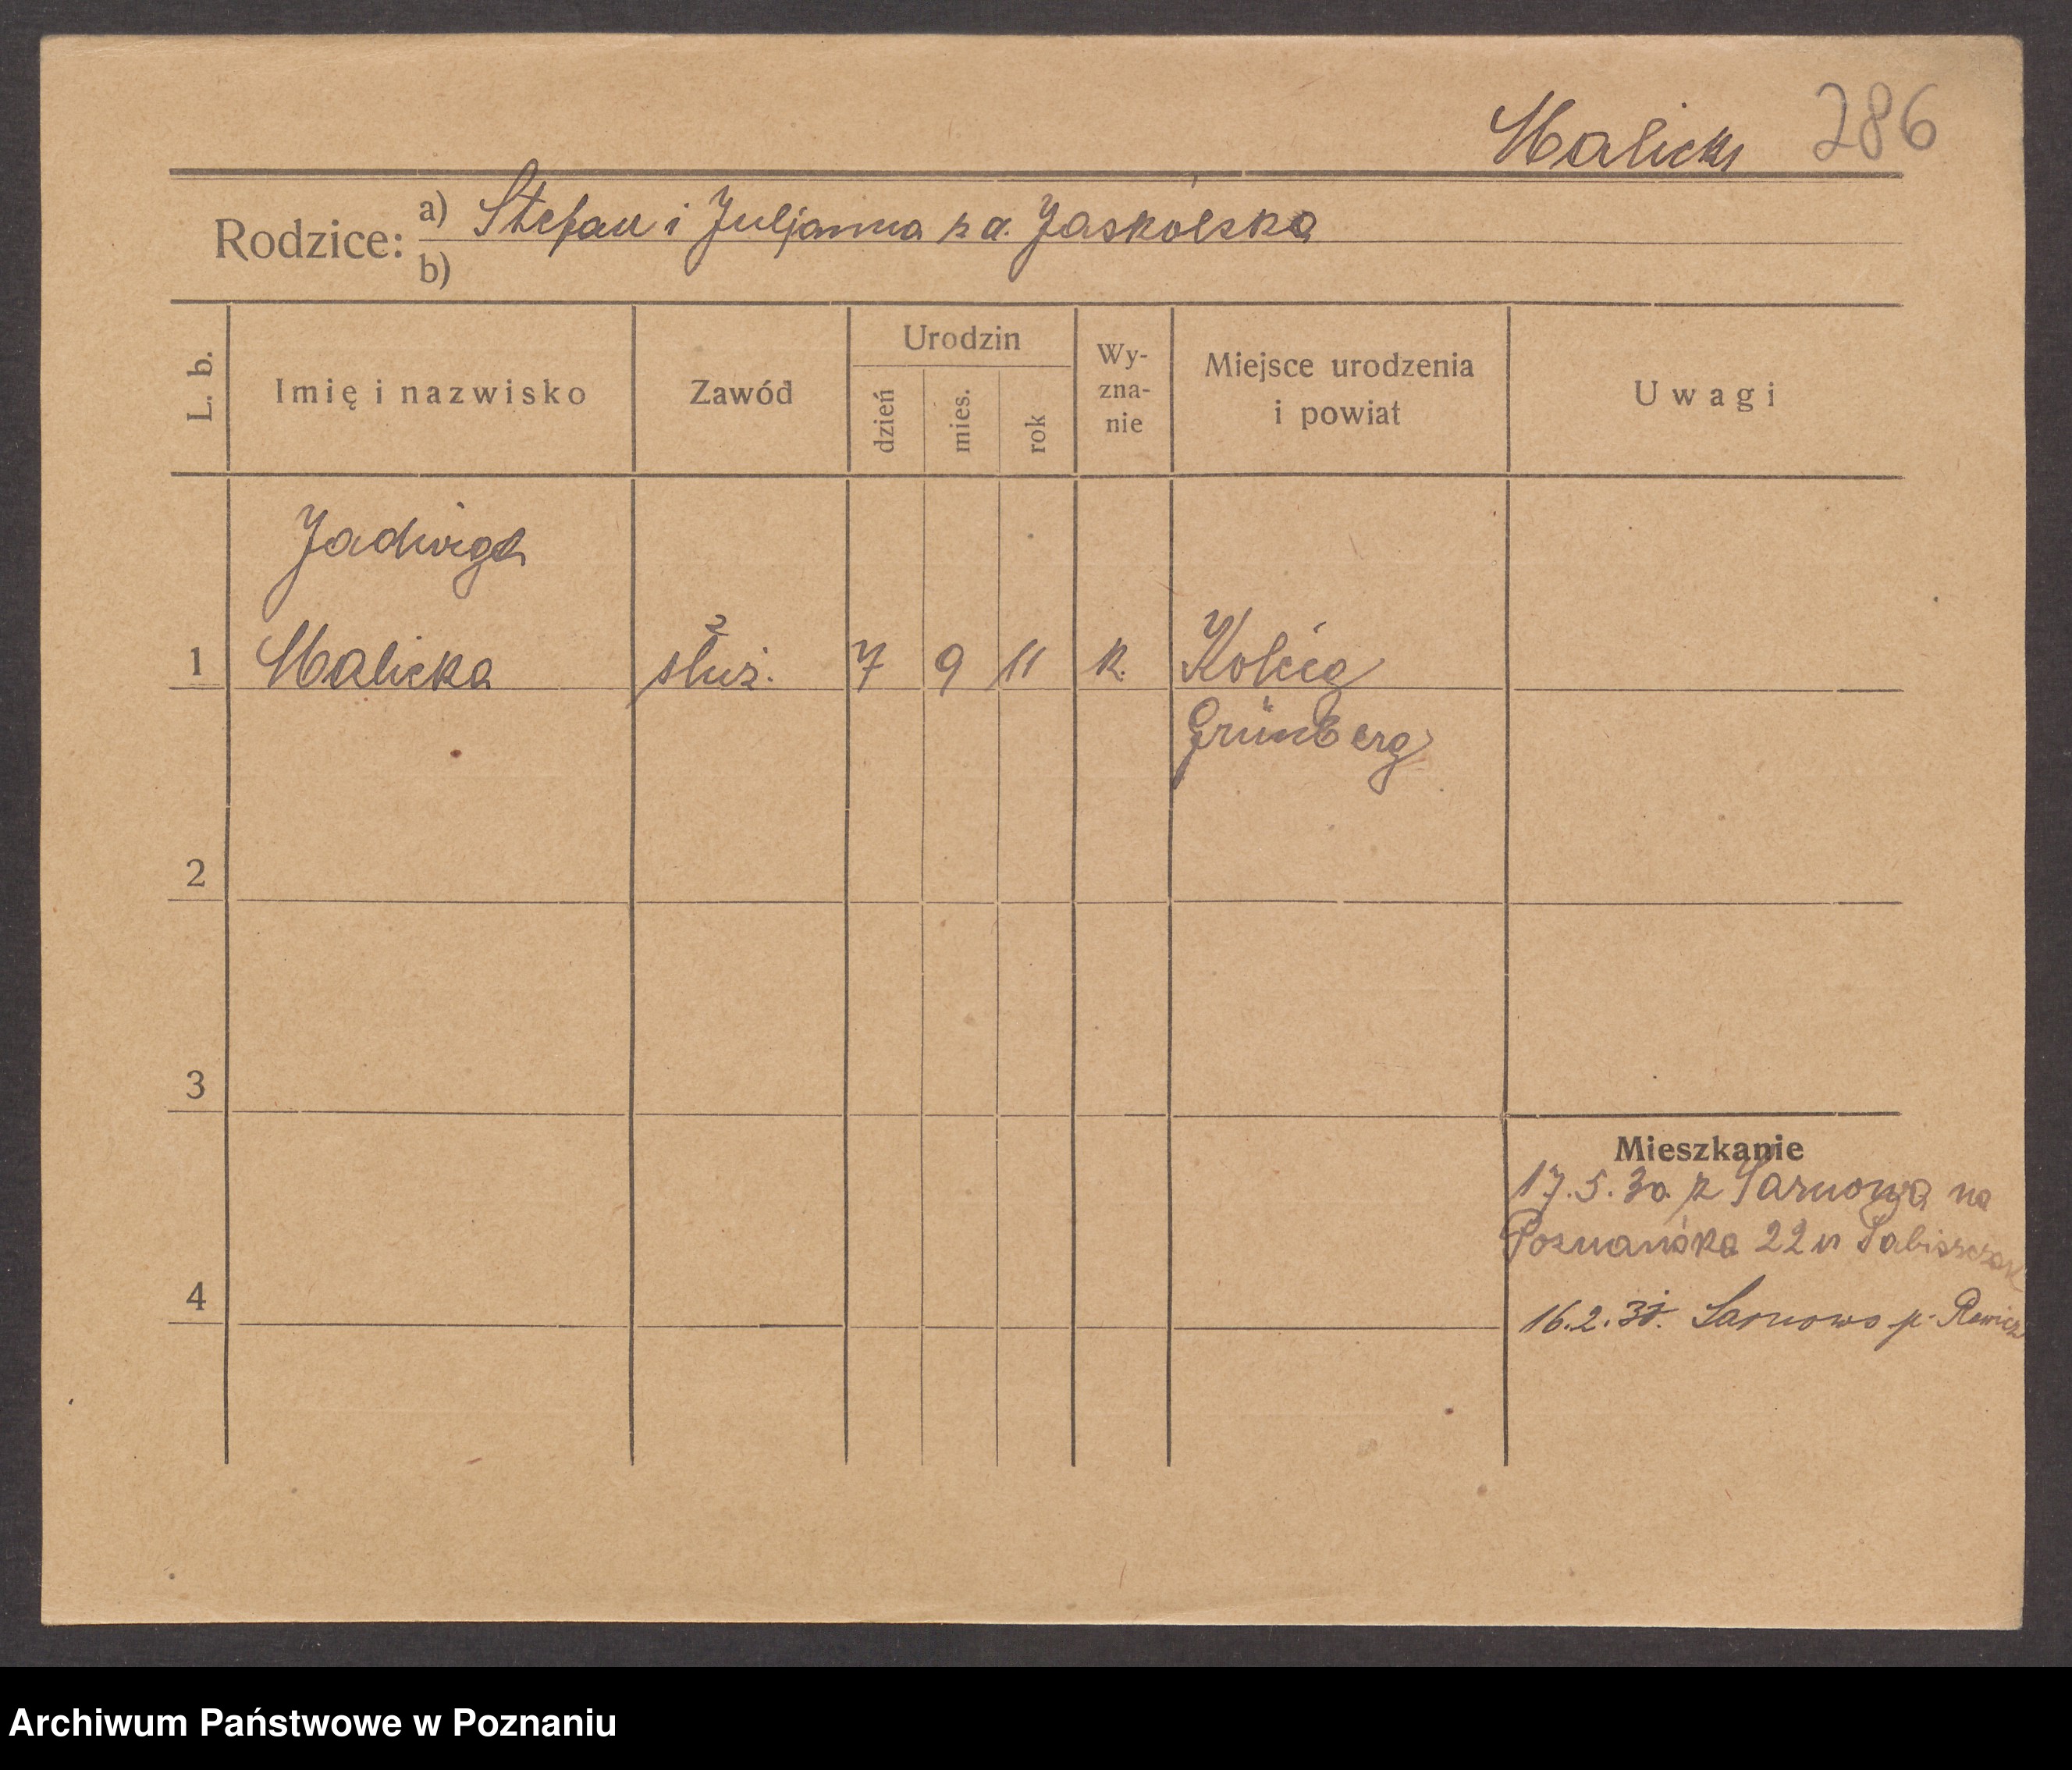 Malicki 286
Rodzice: a) Stefan i Juljanna z d. Jaskólska
b)
L. b.
Imię i nazwisko
Zawód
Urodzin
dzień
mies.
rok
Wy-
zna-
nie
Miejsce urodzenia
i powiat
Uwagi
Jadwiga
1 Malicka służ. 7 9 11 k. Kolzig
Grünberg
2
3
4
Mieszkanie
17.5.30. z Sarnowa na
Poznańska 22 u
16.2. Sarnowo p. Rawicz
Archiwum Państwowe w Poznaniu